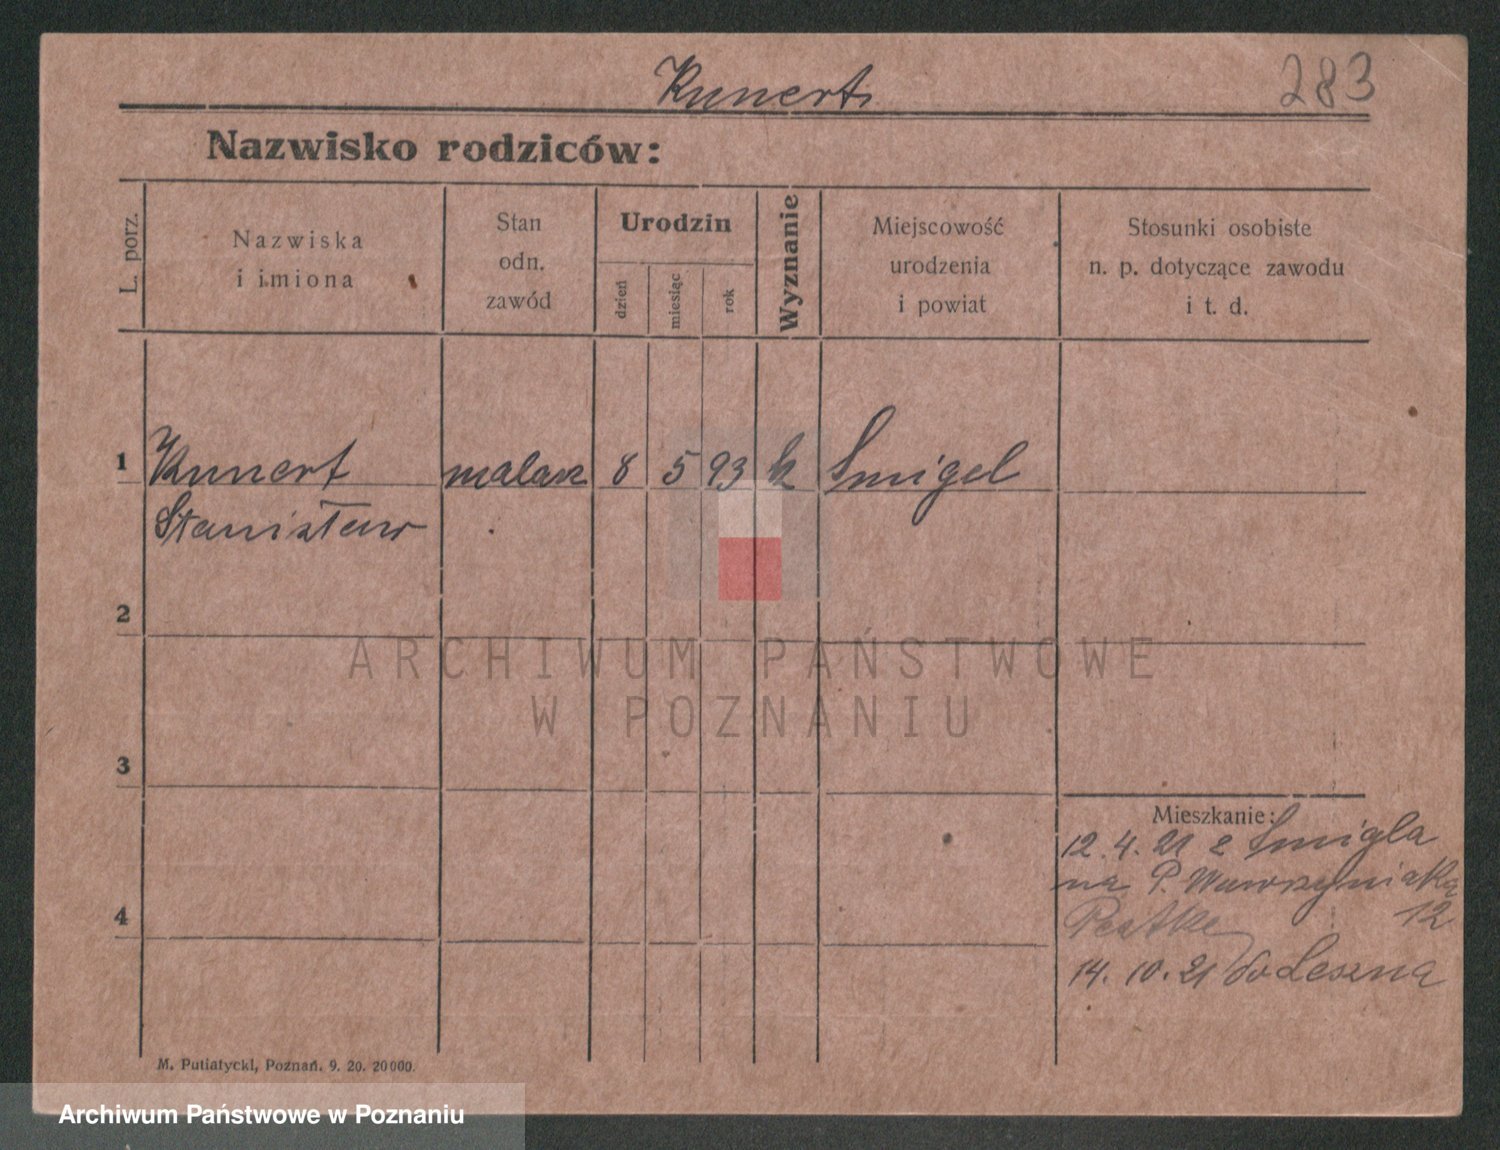 Kunert 283
Nazwisko rodziców:
L. porz.
Nazwiska
i imiona
Stan
odn.
zawód
Urodzin
dzień
miesiąc
rok
Wyznanie
Miejscowość
urodzenia
i powiat
Stosunki osobiste
n. p. dotyczące zawodu
i t. d.
1 Kunert malarz 8 5 93 k Smigel
Stanisław
2
ARCHIWUM PAŃSTWOWE
W POZNANIU
3
Mieszkanie:
12.4.21 z Smigla
na P. Wawrzyniaka
4
12
14.10.21 do Leszna
M. Putiatycki, Poznań. 9. 20. 20000.
Archiwum Państwowe w Poznaniu